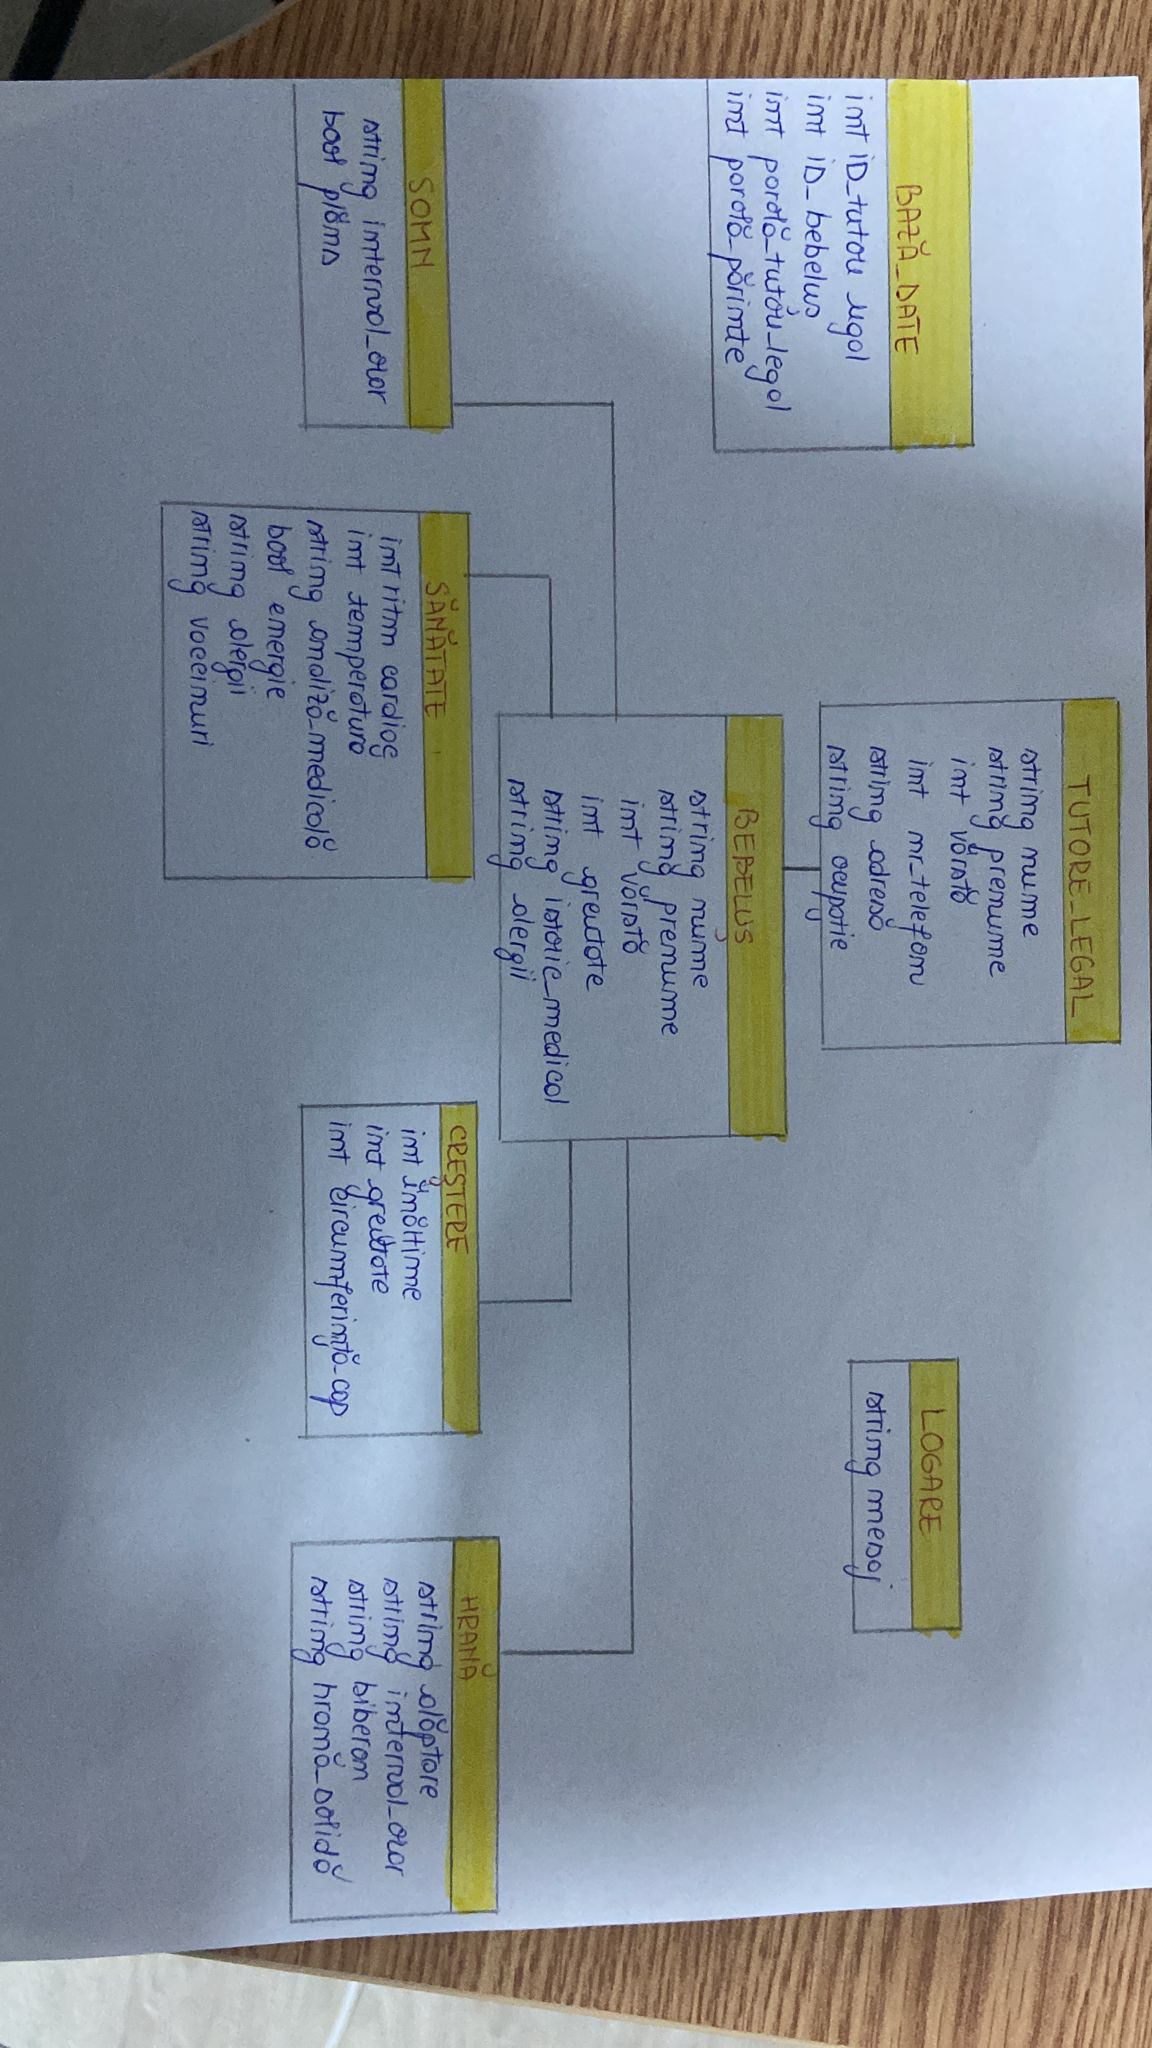 TUTORE_LEGAL
string nume
string prenume
int vârstă
int nr_telefon
string adresă
string ocupație
BAZĂ_DATE
int ID_tutore legal
int ID_bebeluș
int parolă_tutore_legal
int parolă_părinte
LOGARE
string mesaj
BEBELUȘ
string nume
string prenume
int vârstă
int greutate
string istoric_medical
string alergii
SOMN
string interval_orar
bool plâns
SĂNĂTATE
int ritm cardiac
int temperatură
string analiză_medicală
bool energie
string alergii
string vaccinuri
CREȘTERE
int înălțime
int greutate
int circumferință_cap
HRANĂ
string alăptare
string interval_orar
string biberon
string hrană_solidă